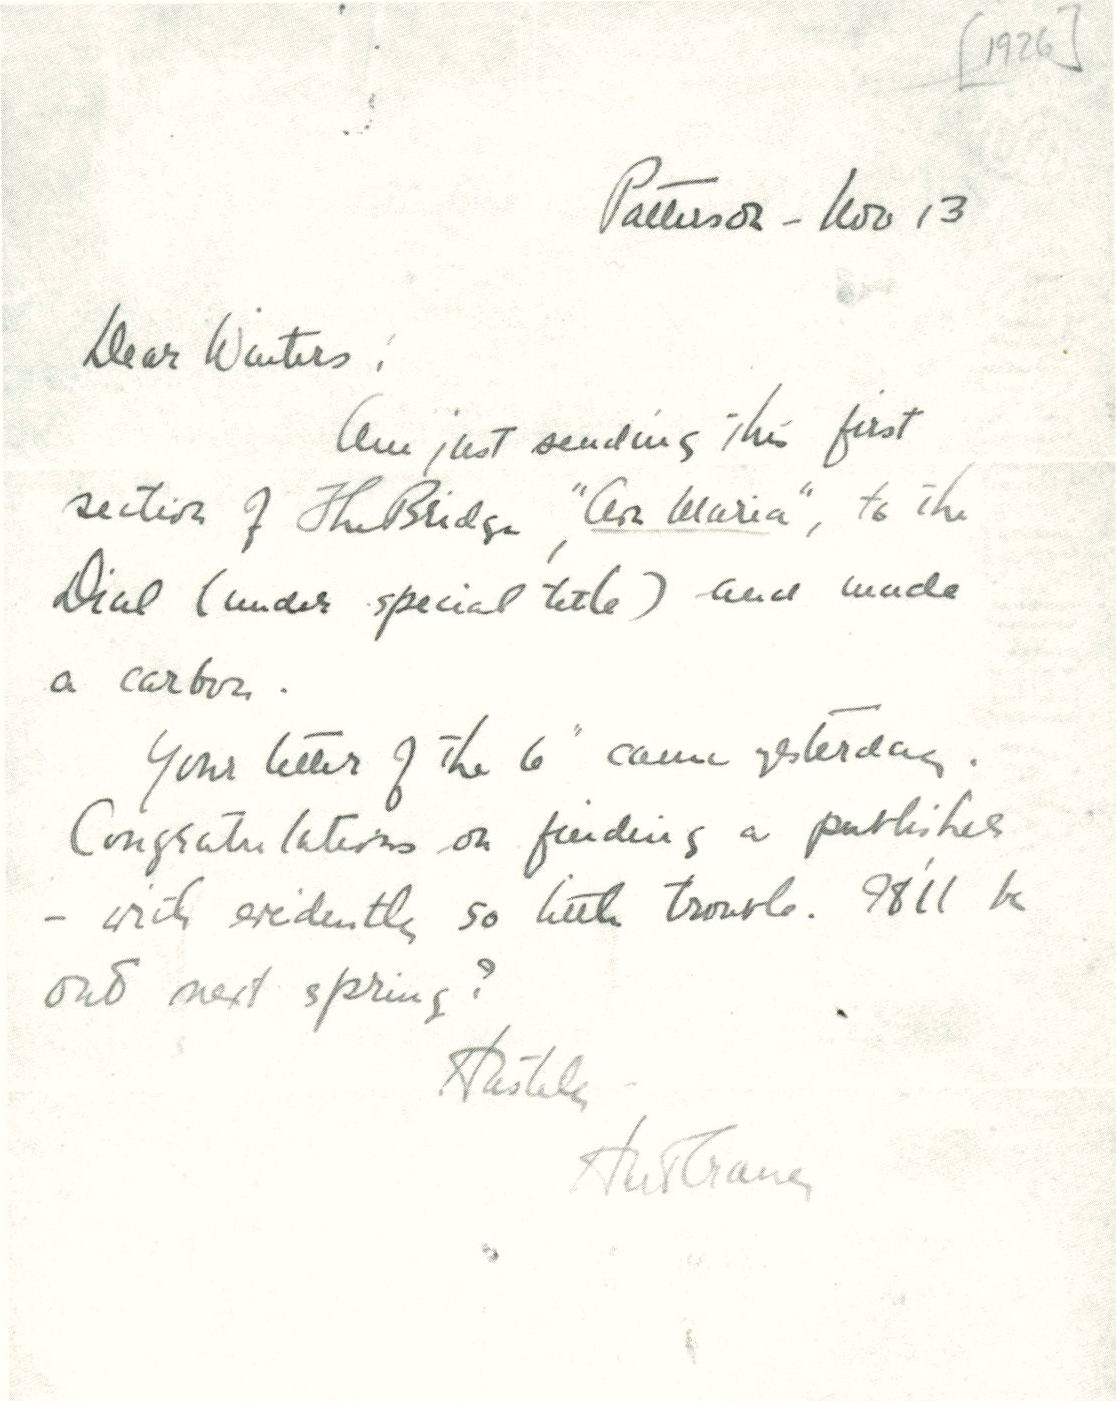 [1926]
Patterson - Nov 13
Dear Winters:
Am just sending this first
section of The Bridge, "Ave Maria", to the
Dial (under special title) and made
a carbon.
Your letter of the 6" came yesterday.
Congratulations on finding a publisher
- with evidently so little trouble. It'll be
out next spring?
Hastily -
Hart Crane